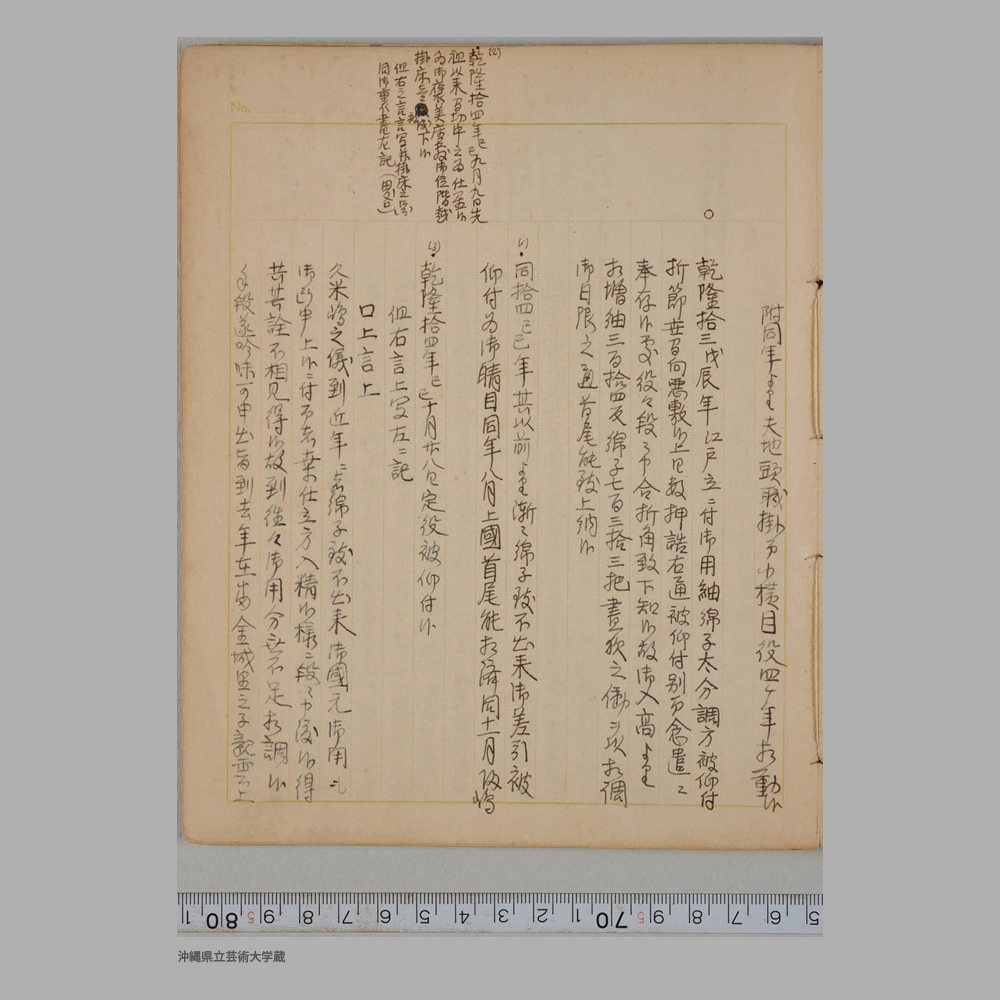 附同年より夫地頭職掛而横目役四ケ年相勤候
○
乾隆拾三戊辰年江戸立ニ付御用紬綿子太分調方被仰付
折節世間向悪敷候上日数押詰右通被仰付別而念遣ニ
奉存候処役々段々申合折角致下知候故御入高より
相増紬三百拾四反綿子七百三拾三把昼夜之働ニ而相調
御日限之通首尾能致上納候
(1)
・同拾四己巳年其以前より漸々綿子致不出来御差引被
仰付為御晴目同年八月上國首尾能相済同十一月帰嶋
(2)
・乾隆拾四年己巳九月九日先
祖以来勤功申立為仕置候
為御褒美座敷御位階並
掛床被成下候
但右之言写并掛床之図
同御書付書左ニ記
(3)
・乾隆拾四年己巳十月廿八日定役被仰付候
但右言上写左ニ記
口上言上
久米嶋之儀到近年ニ者綿子致不出来御國元御用ニも
御断申上候ニ付而者桑仕立方入精候様ニ段々申渡候得
共其詮不相見得候故到後々御用分無不足相調候
手段遂吟味可申出旨到去年在番金城里之子親雲上
No.
5 6 7 8 9 70 1 2 3 4 5 6 7 8 9 80 1
沖縄県立芸術大学蔵